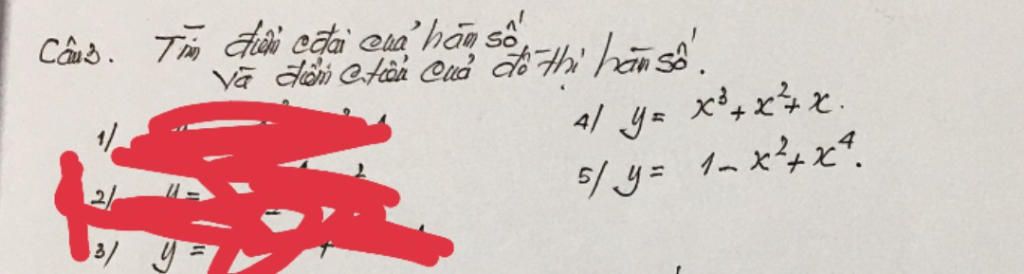 Câu 3. Tìm điểm cđại của hàm số
và điểm c.tiểu của đồ thị hàm số.
1/
2/ y =
3/ y =
4/ y = x³ + x² + x.
5/ y = 1 - x² + x⁴.